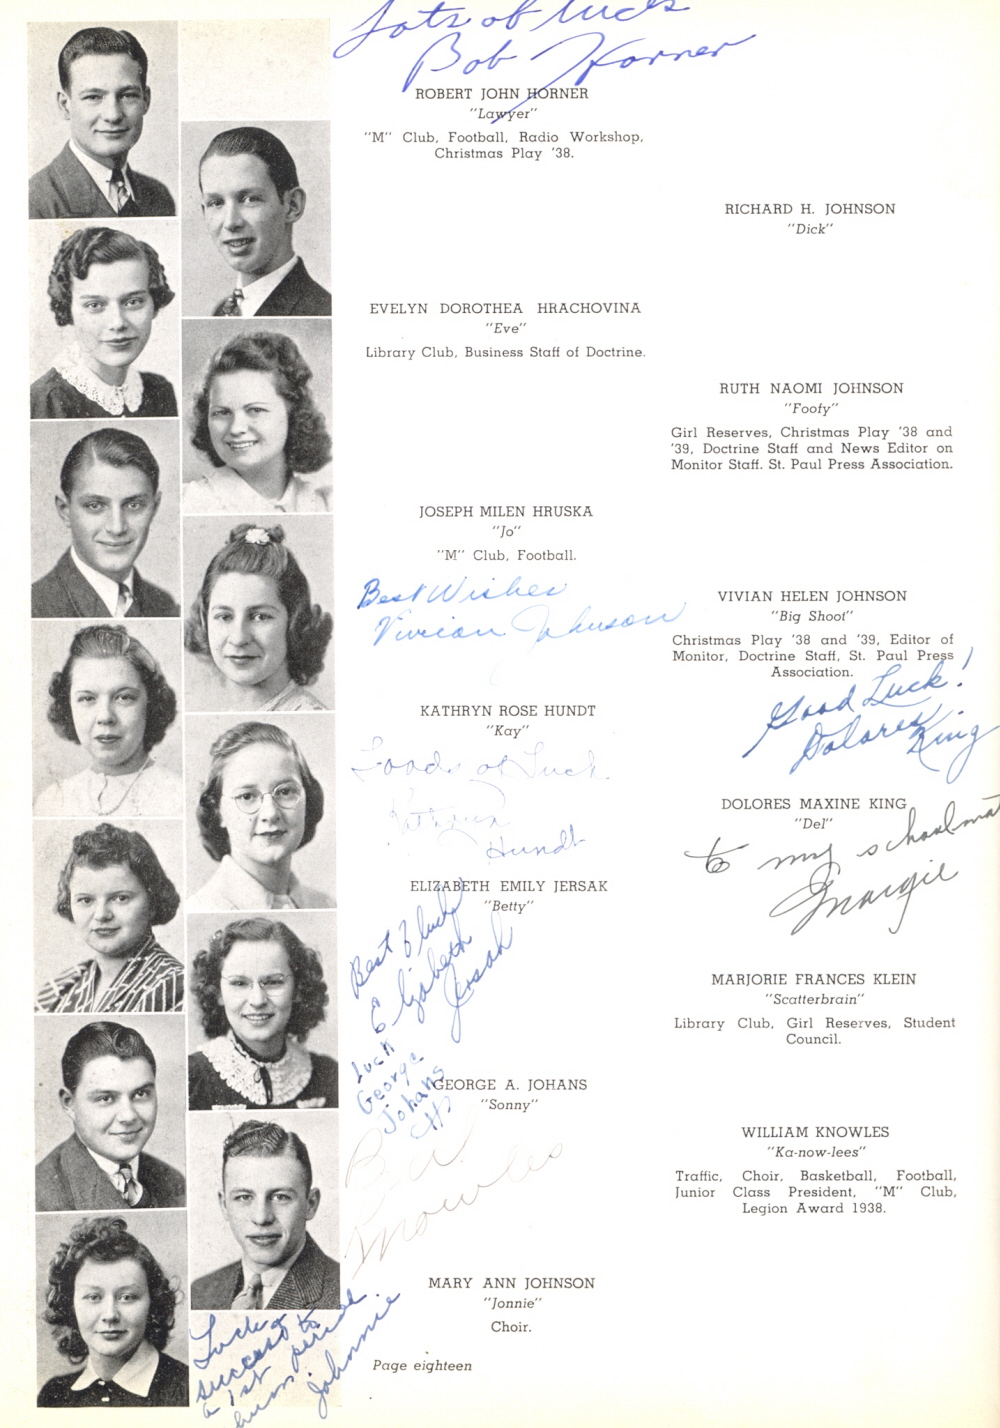 Lots of luck
Bob Horner
ROBERT JOHN HORNER
"Lawyer"
"M" Club, Football, Radio Workshop,
Christmas Play '38.
RICHARD H. JOHNSON
"Dick"
EVELYN DOROTHEA HRACHOVINA
"Eve"
Library Club, Business Staff of Doctrine.
RUTH NAOMI JOHNSON
"Foofy"
Girl Reserves, Christmas Play '38 and
'39, Doctrine Staff and News Editor on
Monitor Staff. St. Paul Press Association.
JOSEPH MILEN HRUSKA
"Jo"
"M" Club, Football.
Best Wishes
Vivian Johnson
VIVIAN HELEN JOHNSON
"Big Shoot"
Christmas Play '38 and '39, Editor of
Monitor, Doctrine Staff, St. Paul Press
Association.
Good Luck!
Dolores King
KATHRYN ROSE HUNDT
"Kay"
Loads of Luck.
Kathryn
Hundt
DOLORES MAXINE KING
"Del"
to my schoolmate
Margie
ELIZABETH EMILY JERSAK
"Betty"
Best of luck
Elizabeth
Jersak
MARJORIE FRANCES KLEIN
"Scatterbrain"
Library Club, Girl Reserves, Student
Council.
Luck
George
Johans
GEORGE A. JOHANS
"Sonny"
Bill
Knowles
WILLIAM KNOWLES
"Ka-now-lees"
Traffic, Choir, Basketball, Football,
Junior Class President, "M" Club,
Legion Award 1938.
MARY ANN JOHNSON
"Jonnie"
Choir.
Luck &
success to
a 1st period
chum.
Johnnie
Page eighteen